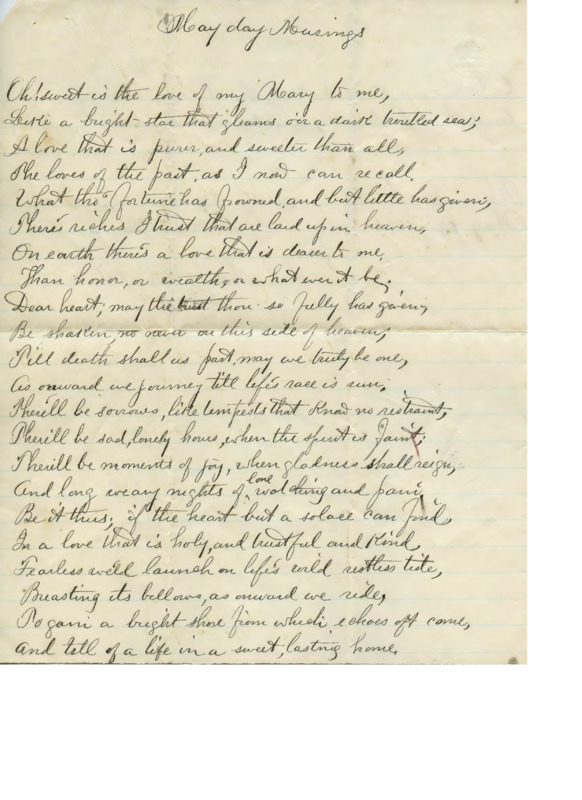 May day Musings
Oh! sweet is the love of my Mary to me,
Like a bright star that gleams o'er a dark troubled sea;
A love that is purer, and sweeter than all,
The loves of the past, as I now can recall.
What tho' fortune has frowned, and but little has given,
There's riches I trust that are laid up in heaven,
On earth there's a love that is dearer to me,
Than honor, or wealth, or what ever it be,
Dear heart; may the trust thou so fully has given,
Be shaken, no never on this side of heaven;
Till death shall us part, may we truly be one,
As onward we journey till life's race is run;
There'll be sorrows, like tempests that know no restraint,
There'll be sad, lonely hours, when the spirit is faint;
There'll be moments of joy, when gladness shall reign,
And long weary nights of lone watching and pain,
Be it thus; if the heart but a solace can find,
In a love that is holy, and trustful and kind,
Fearless we'll launch on life's wild restless tide,
Breasting its billows, as onward we ride,
To gain a bright shore from which echoes oft come,
And tell of a life in a sweet, lasting home.